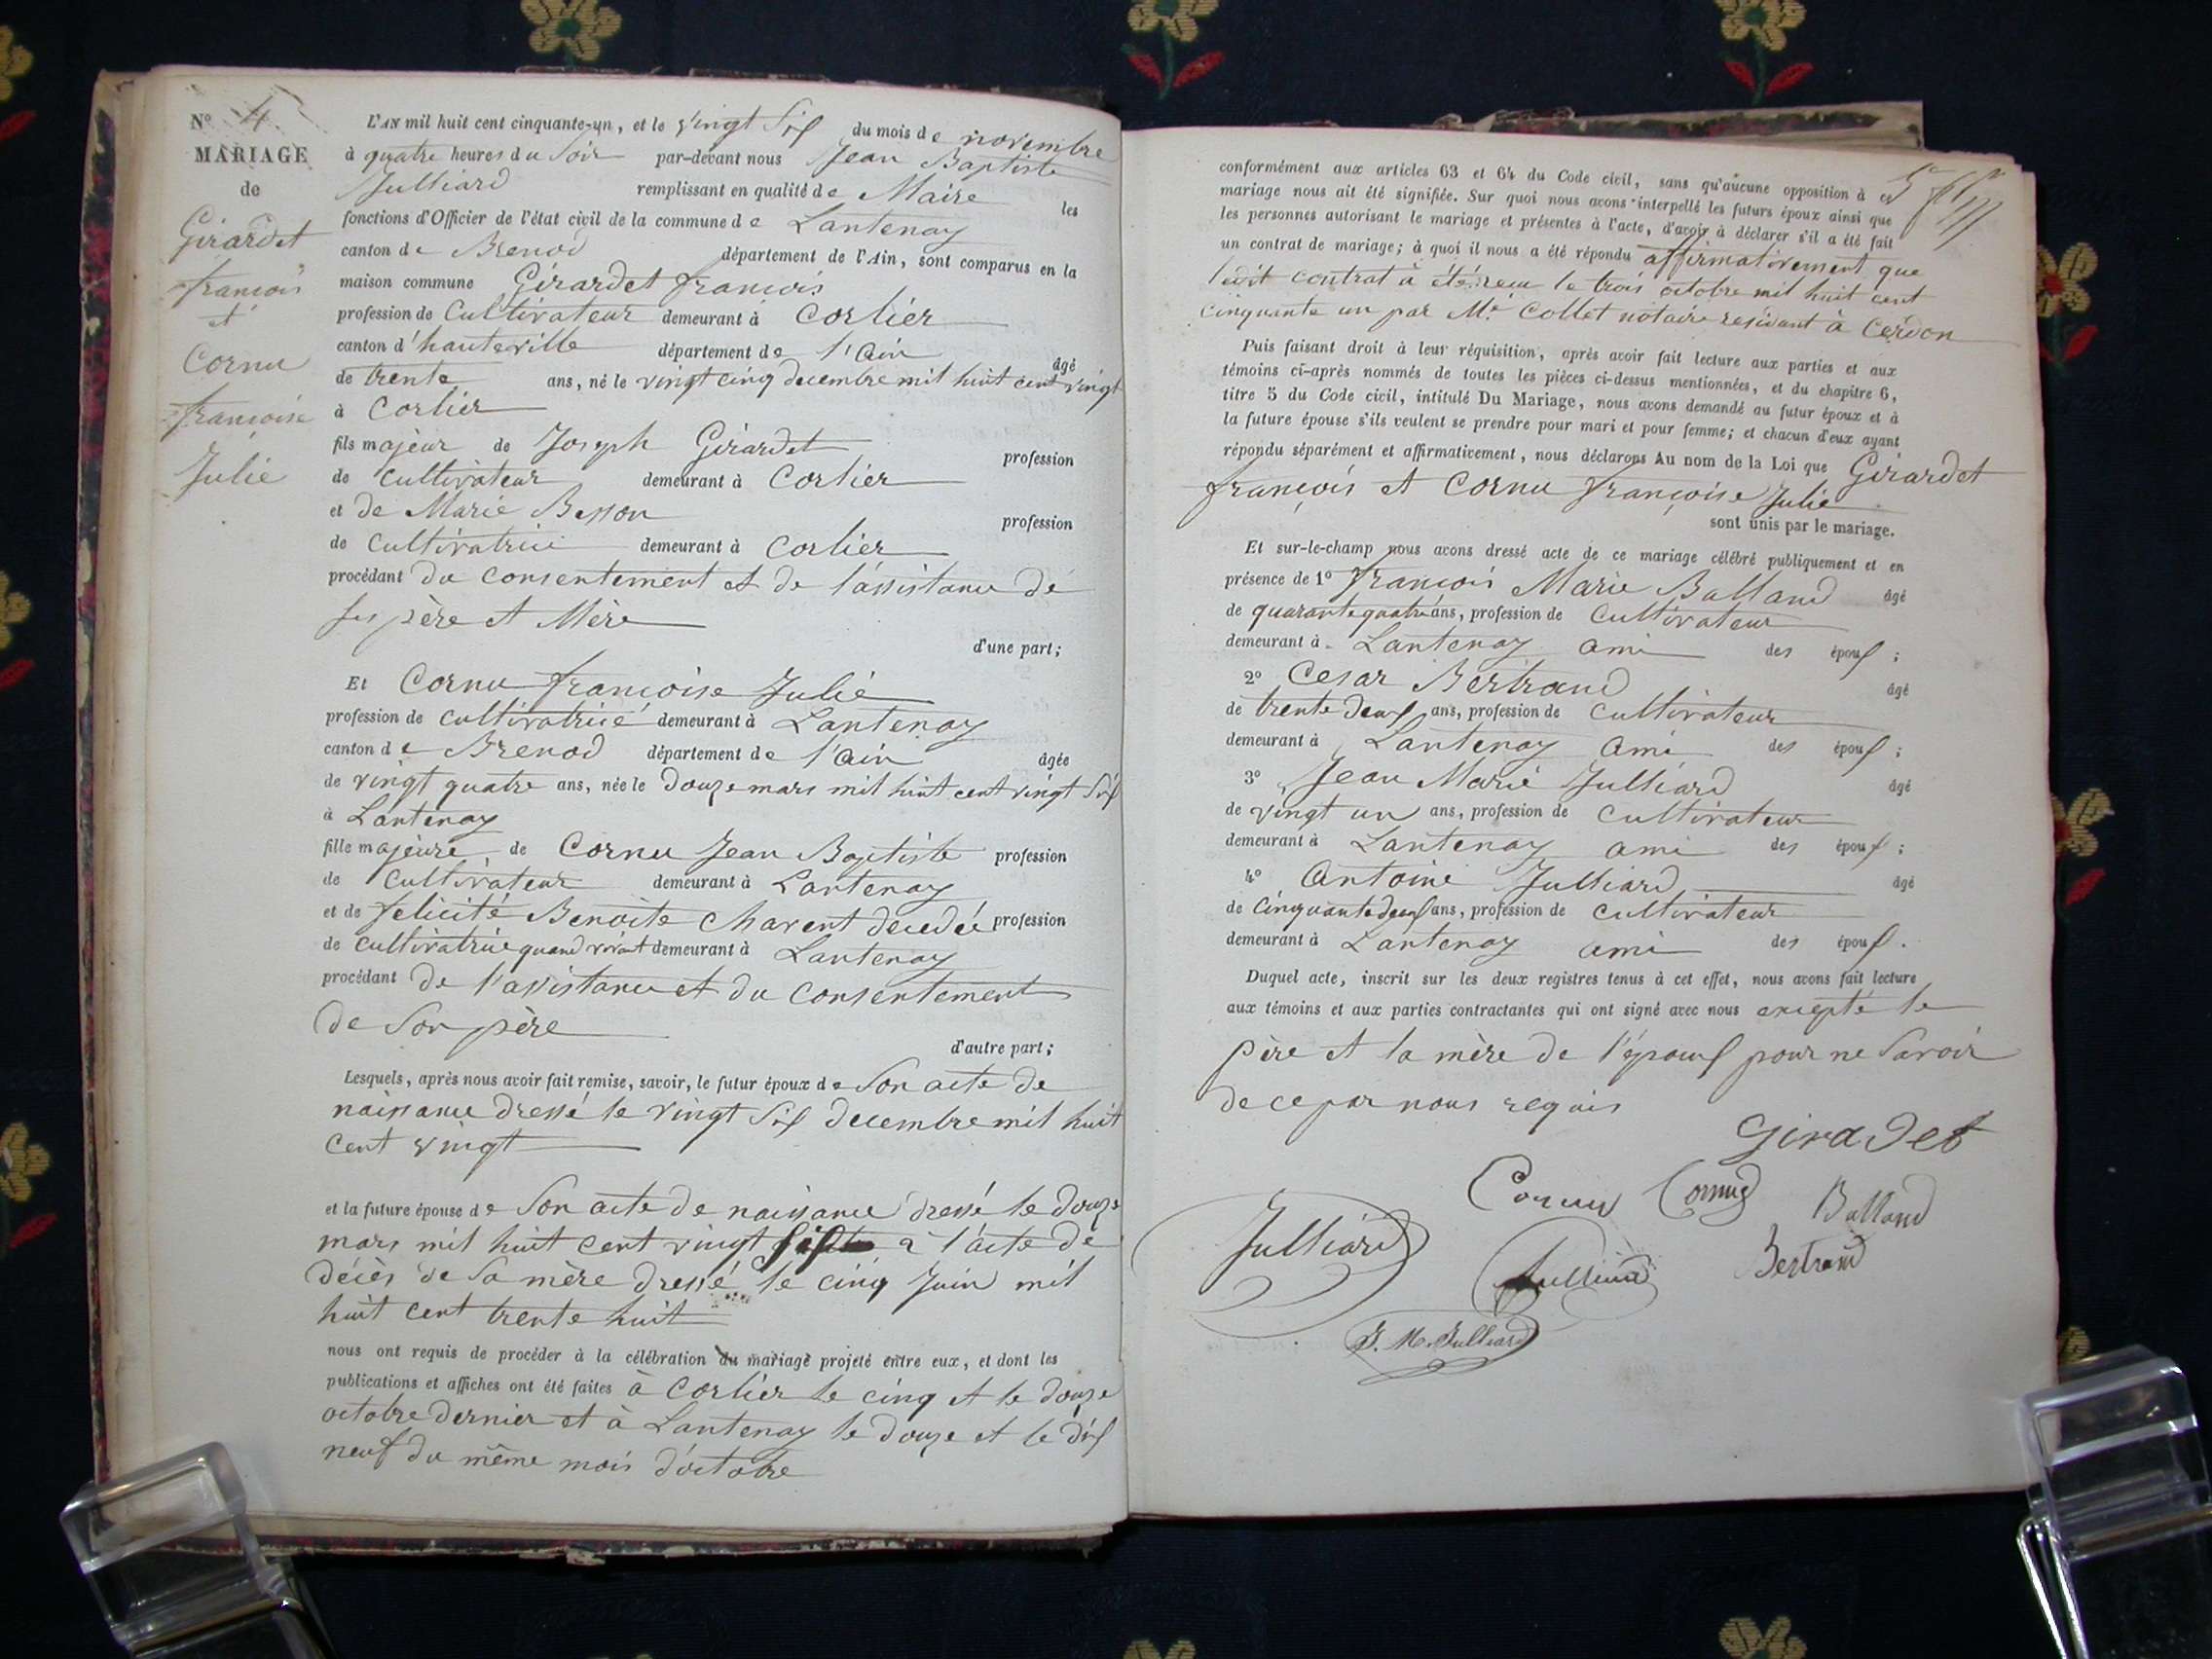 N° 4
MARIAGE
de
Girardet
françois
et
Cornu
françoise
Julie
L'AN mil huit cent cinquante-un, et le vingt Six du mois de novembre
à quatre heures du Soir par-devant nous Jean Baptiste
Julliard remplissant en qualité de Maire les
fonctions d'Officier de l'état civil de la commune de Lantenay
canton de Brenod département de l'Ain, sont comparus en la
maison commune Girardet françois
profession de Cultivateur demeurant à Corlier
canton d'hauteville département de l'Ain âgé
de trente ans, né le vingt cinq decembre mil huit cent vingt
à Corlier
fils majeur de Joseph Girardet profession
de Cultivateur demeurant à Corlier
et de Marie Besson profession
de Cultivatrice demeurant à Corlier
procédant du consentement et de l'assistance de
ses père et Mère
d'une part;
Et Cornu françoise Julie
profession de cultivatrice demeurant à Lantenay
canton de Brenod département de l'ain âgée
de vingt quatre ans, née le Douze mars mil huit cent vingt Six
à Lantenay
fille majeure de Cornu Jean Baptiste profession
de Cultivateur demeurant à Lantenay
et de felicité Benoite Charent decedée profession
de cultivatrice quand vivait demeurant à Lantenay
procédant de l'assistance et du consentement
de Son père
d'autre part;
Lesquels, après nous avoir fait remise, savoir, le futur époux de Son acte de
naissance dressé le vingt Six decembre mil huit
cent vingt
et la future épouse de Son acte de naissance dressé le douze
mars mil huit cent vingt Six à l'acte de
décès de Sa mère dressé le cinq Juin mil
huit cent trente huit
nous ont requis de procéder à la célébration du mariage projeté entre eux, et dont les
publications et affiches ont été faites à Corlier le cinq et le douze
octobre dernier et à Lantenay le douze et le dix
neuf du même mois d'octobre
conformément aux articles 63 et 64 du Code civil, sans qu'aucune opposition à ce
mariage nous ait été signifiée. Sur quoi nous avons interpellé les futurs époux ainsi que
les personnes autorisant le mariage et présentes à l'acte, d'avoir à déclarer s'il a été fait
un contrat de mariage; à quoi il nous a été répondu affirmativement que
ledit contrat à été recu le trois octobre mil huit cent
cinquante un par Me Collet notaire residant à Cerdon
Puis faisant droit à leur réquisition, après avoir fait lecture aux parties et aux
témoins ci-après nommés de toutes les pièces ci-dessus mentionnées, et du chapitre 6,
titre 5 du Code civil, intitulé Du Mariage, nous avons demandé au futur époux et à
la future épouse s'ils veulent se prendre pour mari et pour femme; et chacun d'eux ayant
répondu séparément et affirmativement, nous déclarons Au nom de la Loi que Girardet
françois et Cornu françoise Julie
sont unis par le mariage.
Et sur-le-champ nous avons dressé acte de ce mariage célébré publiquement et en
présence de 1° françois Marie Balland âgé
de quarante quatre ans, profession de Cultivateur
demeurant à Lantenay ami des époux;
2° Cesar Bertrand âgé
de trente deux ans, profession de Cultivateur
demeurant à Lantenay ami des époux;
3° Jean Marie Julliard âgé
de vingt un ans, profession de Cultivateur
demeurant à Lantenay ami des époux;
4° Antoine Julliard âgé
de cinquante deux ans, profession de cultivateur
demeurant à Lantenay ami des époux.
Duquel acte, inscrit sur les deux registres tenus à cet effet, nous avons fait lecture
aux témoins et aux parties contractantes qui ont signé avec nous excepté le
père et la mère de l'époux pour ne Savoir
de ce par nous requis
Giradet
Cornu Cornud Balland
Julliard Julliard Bertrand
J. M. Julliard